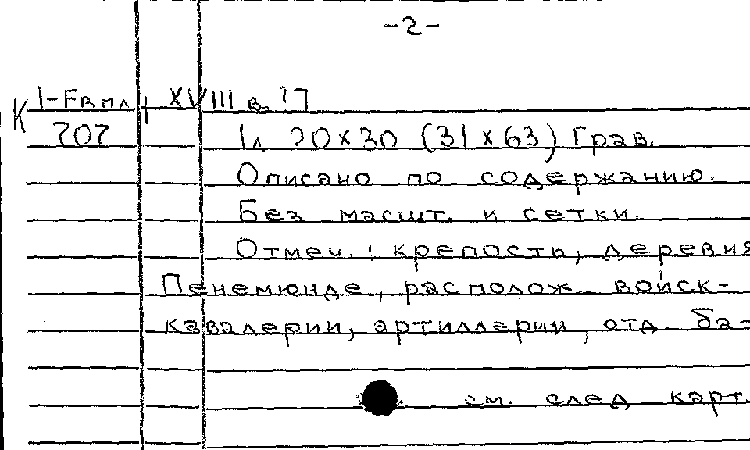 -2-
К
XVIII в.
707
1л 20×30 (31×63) Грав.
Описано по содержанию.
Без масшт. и сетки.
Отмеч.: крепость, деревня
Пенемюнде, располож. войск-
кавалерии, артиллерии, отд. ба-
см. след карт.